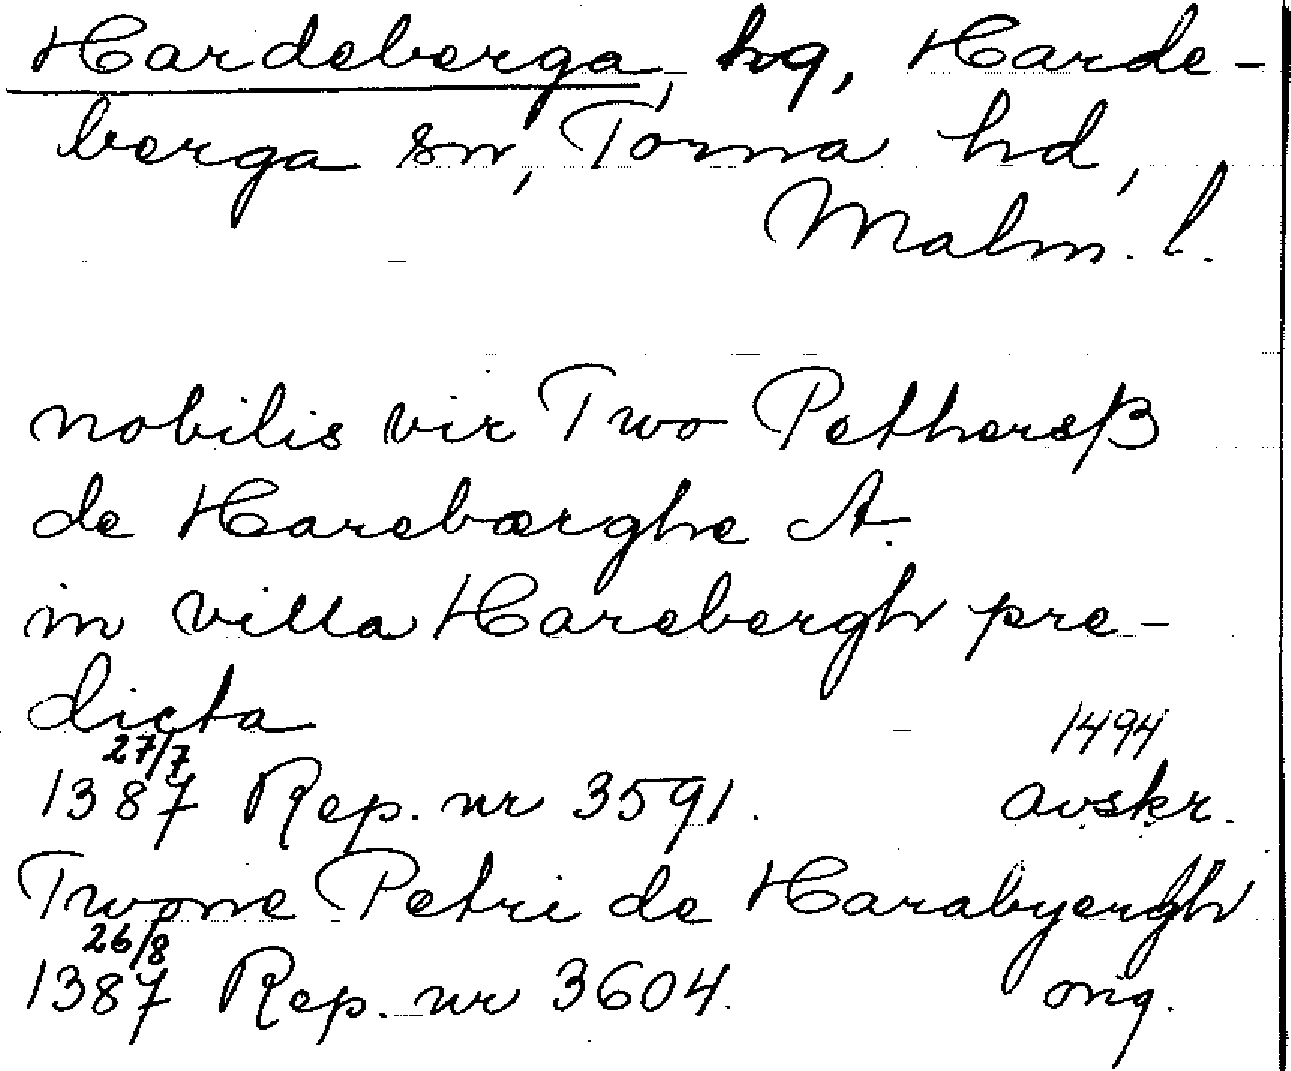 Hardeberga, hg, Harde-
berga sn, Torna hd,
Malm. l.
nobilis vir Two Pethersß
de Harebærghe A.
in villa Harebergh pre-
dicta
27/7 1494
1387 Rep. nr 3591. avskr.
Twone Petri de Harabyergh
26/8
1387 Rep. nr 3604. orig.